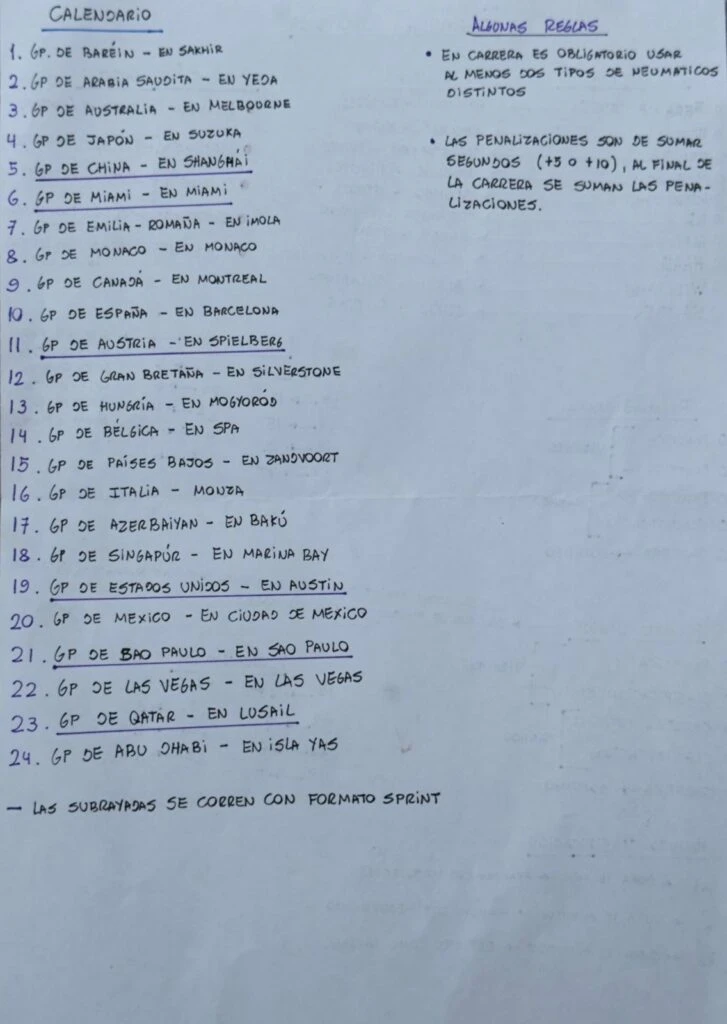 CALENDARIO
1. GP. DE BARÉIN - EN SAKHIR
2. GP DE ARABIA SAUDITA - EN YEDA
3. GP DE AUSTRALIA - EN MELBOURNE
4. GP DE JAPÓN - EN SUZUKA
5. GP DE CHINA - EN SHANGHÁI
6. GP DE MIAMI - EN MIAMI
7. GP DE EMILIA - ROMAÑA - EN IMOLA
8. GP DE MONACO - EN MONACO
9. GP DE CANADÁ - EN MONTREAL
10. GP DE ESPAÑA - EN BARCELONA
11. GP DE AUSTRIA - EN SPIELBERG
12. GP DE GRAN BRETAÑA - EN SILVERSTONE
13. GP DE HUNGRÍA - EN MOGYORÓD
14. GP DE BÉLGICA - EN SPA
15. GP DE PAÍSES BAJOS - EN ZANDVOORT
16. GP DE ITALIA - MONZA
17. GP DE AZERBAIYAN - EN BAKÚ
18. GP DE SINGAPÚR - EN MARINA BAY
19. GP DE ESTADOS UNIDOS - EN AUSTIN
20. GP DE MEXICO - EN CIUDAD DE MEXICO
21. GP DE SAO PAULO - EN SAO PAULO
22. GP DE LAS VEGAS - EN LAS VEGAS
23. GP DE QATAR - EN LUSAIL
24. GP DE ABU DHABI - EN ISLA YAS
- LAS SUBRAYADAS SE CORREN CON FORMATO SPRINT
ALGUNAS REGLAS
• EN CARRERA ES OBLIGATORIO USAR
AL MENOS DOS TIPOS DE NEUMATICOS
DISTINTOS
• LAS PENALIZACIONES SON DE SUMAR
SEGUNDOS (+5 O +10), AL FINAL DE
LA CARRERA SE SUMAN LAS PENA-
LIZACIONES.